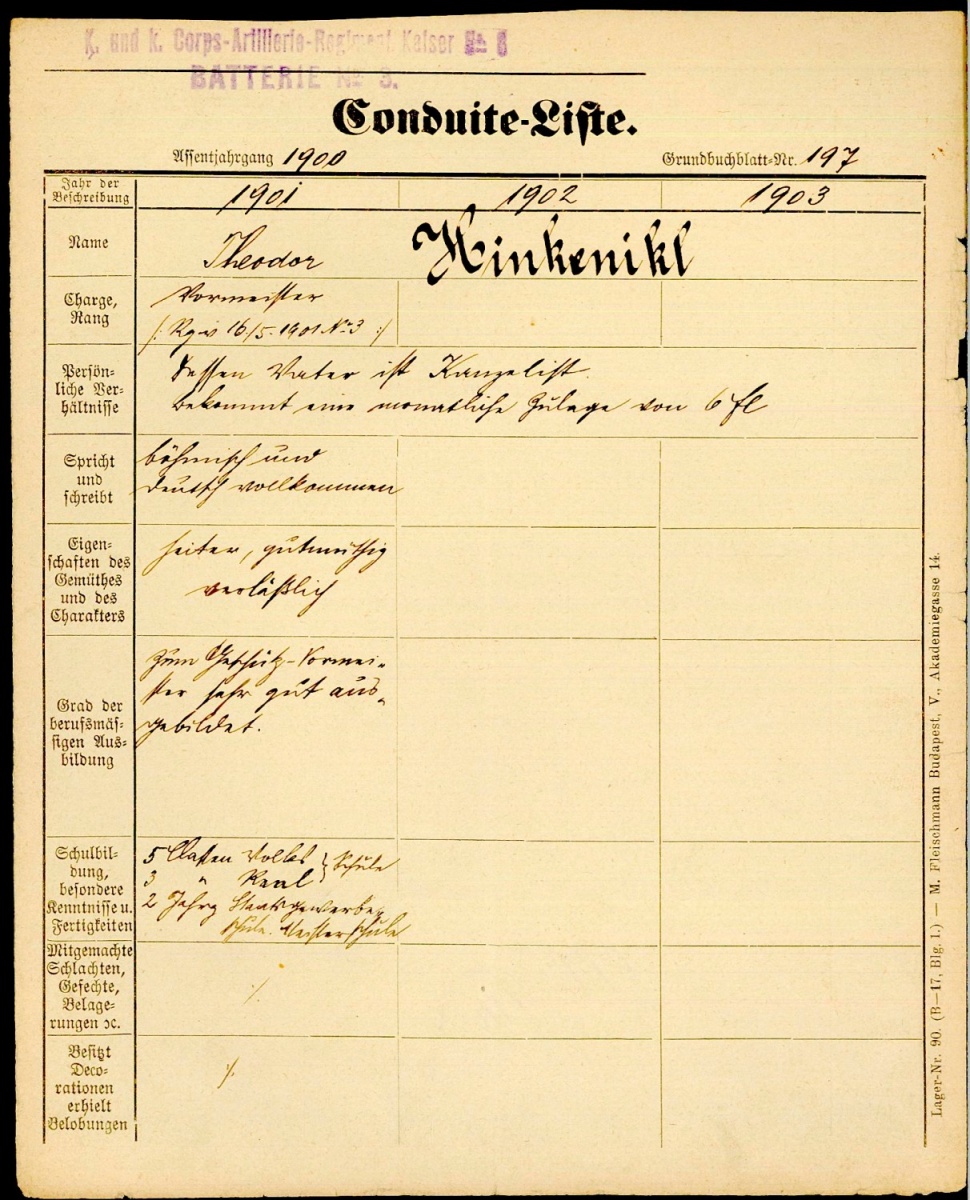 K. und k. Corps-Artillerie-Regiment Kaiser No 8
BATTERIE No 3.
Conduite-Liste.
Assentjahrgang 1900
Grundbuchblatt-Nr. 197
Jahr der
Beschreibung
1901
1902
1903
Name
Theodor Hinkenikl
Charge,
Rang
Vormeister
/: Rgv 16/5. 1901 No 3 :/
Persön-
liche Ver-
hältnisse
Dessen Vater ist Kanzelist.
bekommt eine monatliche Zulage von 6 fl
Spricht
und
schreibt
böhmisch und
deutsch vollkommen
Eigen-
schaften des
Gemüthes
und des
Charakters
heiter, gutmüthig
verläßlich
Grad der
berufsmäs-
sigen Aus-
bildung
Zum Geschütz-Vormei-
ster sehr gut aus-
gebildet.
Schulbil-
dung,
besondere
Kenntnisse u.
Fertigkeiten
5 Classen Volks } Schule
3 " Real
2 Jahrg Staatsgewerbe-
schule. Meisterschule
Mitgemachte
Schlachten,
Gefechte,
Belage-
rungen ꝛc.
/.
Besitzt
Deco-
rationen
erhielt
Belobungen
/.
Lager-Nr. 90. (B—17, Blg. 1.) — M. Fleischmann Budapest, V., Akademiegasse 14.